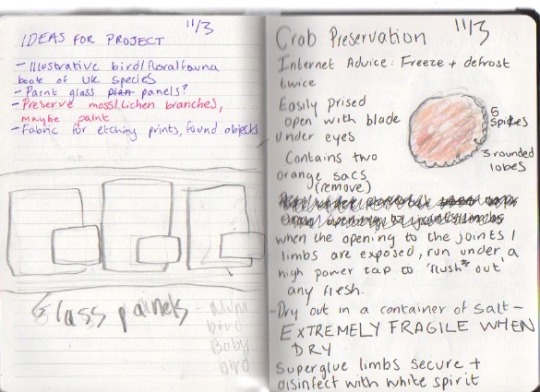 11/3
IDEAS FOR PROJECT
- Illustrative bird/floral fauna
book of UK Species
- Paint glass panels?
- Preserve moss/lichen branches,
maybe paint
- Fabric for etching prints, found objects
Glass panels
bird
Baby
bird
11/3
Crab Preservation
Internet Advice: Freeze + defrost
twice
Easily prised
open with blade
under eyes
5
spikes
3 rounded
lobes
Contains two
orange sacs
(remove)
when the opening to the joints/
limbs are exposed, run under a
high power tap to "flush" out
any flesh.
- Dry out in a container of salt -
EXTREMELY FRAGILE WHEN
DRY
Superglue limbs secure +
disinfect with white spirit